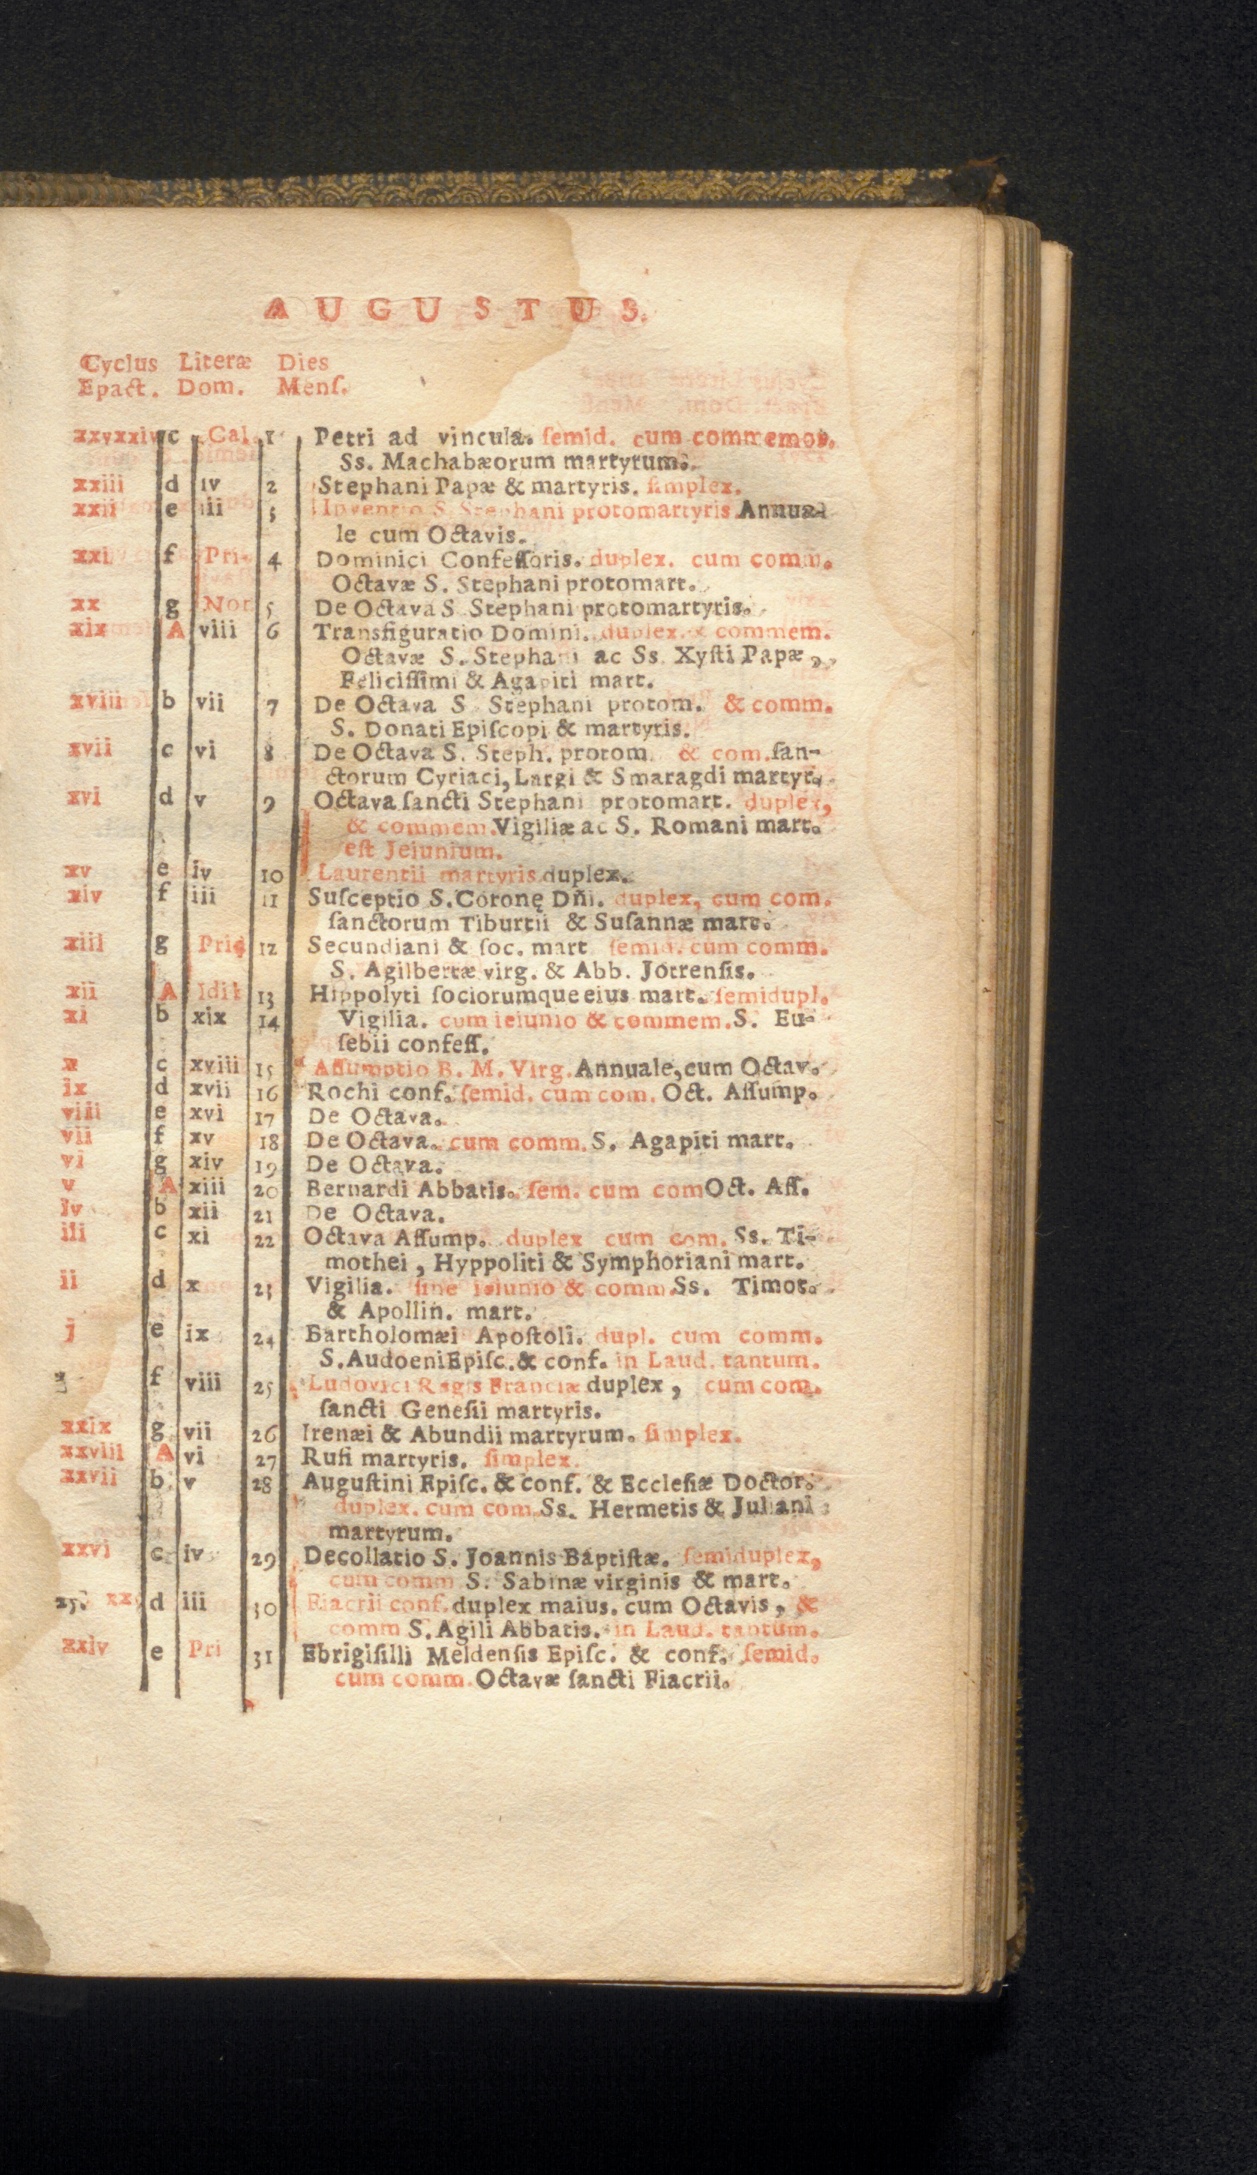 AUGUSTUS.
Cyclus Literæ Dies
Epact. Dom. Menſ.
xxvxxiv c Cal. 1 Petri ad vincula. ſemid. cum commemor.
Ss. Machabæorum martyrum.
xxiii d iv 2 Stephani Papæ & martyris. ſimplex.
xxii e iii 3 Inventio S. Stephani protomartyris. Annua-
le cum Octavis.
xxi f Pri- 4 Dominici Confeſſoris. duplex. cum comm.
Octavæ S. Stephani protomart.
xx g Non 5 De Octava S. Stephani protomartyris.
xix A viii 6 Transfiguratio Domini. duplex. & commem.
Octavæ S. Stephani ac Ss. Xyſti Papæ,
Feliciſſimi & Agapiti mart.
xviii b vii 7 De Octava S. Stephani protom. & comm.
S. Donati Epiſcopi & martyris.
xvii c vi 8 De Octava S. Steph. protom. & com. ſan-
ctorum Cyriaci, Largi & Smaragdi martyr.
xvi d v 9 Octava ſancti Stephani protomart. duplex,
& commem. Vigiliæ ac S. Romani mart.
eſt Jeiunium.
xv e iv 10 Laurentii martyris duplex.
xiv f iii 11 Suſceptio S. Coronę Dñi. duplex, cum com.
ſanctorum Tiburtii & Suſannæ mart.
xiii g Prid 12 Secundiani & ſoc. mart. ſemid. cum comm.
S. Agilbertæ virg. & Abb. Jotrenſis.
xii A Idib 13 Hippolyti ſociorumque eius mart. ſemidupl.
xi b xix 14 Vigilia. cum ieiunio & commem. S. Eu-
ſebii confeſſ.
x c xviii 15 Aſſumptio B. M. Virg. Annuale, cum Octav.
ix d xvii 16 Rochi conf. ſemid. cum com. Oct. Aſſump.
viii e xvi 17 De Octava.
vii f xv 18 De Octava. cum comm. S. Agapiti mart.
vi g xiv 19 De Octava.
v A xiii 20 Bernardi Abbatis. ſem. cum com Oct. Aſſ.
iv b xii 21 De Octava.
iii c xi 22 Octava Aſſump. duplex cum com. Ss. Ti-
mothei, Hyppoliti & Symphoriani mart.
ii d x 23 Vigilia. ſine ieiunio & comm. Ss. Timot.
& Apollin. mart.
j e ix 24 Bartholomæi Apoſtoli. dupl. cum comm.
S. Audoeni Epiſc. & conf. in Laud. tantum.
f viii 25 Ludovici Regis Franciæ duplex, cum com.
ſancti Geneſii martyris.
xxix g vii 26 Irenæi & Abundii martyrum. ſimplex.
xxviii A vi 27 Rufi martyris. ſimplex.
xxvii b v 28 Auguſtini Epiſc. & conf. & Eccleſiæ Doctor.
duplex. cum com. Ss. Hermetis & Juliani
martyrum.
xxvi c iv 29 Decollatio S. Joannis Baptiſtæ. ſemiduplex,
cum comm S. Sabinæ virginis & mart.
25. xxv d iii 30 Fiacrii conf. duplex maius. cum Octavis, &
comm S. Agili Abbatis. in Laud. tantum.
xxiv e Pri 31 Ebrigiſilli Meldenſis Epiſc. & conf. ſemid.
cum comm. Octavæ ſancti Fiacrii.